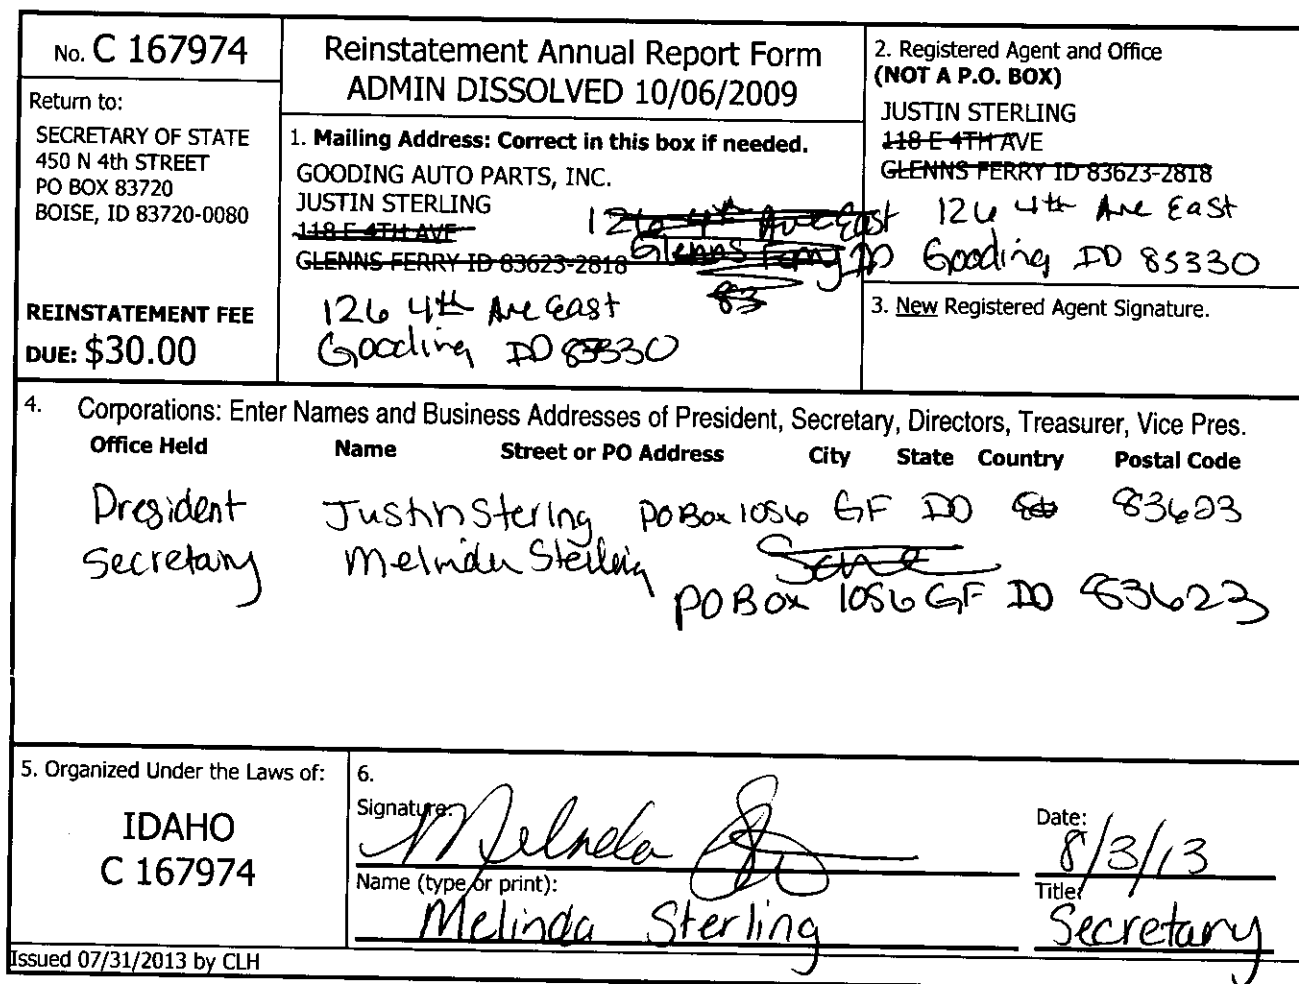 No. C 167974
Return to:
SECRETARY OF STATE
450 N 4th STREET
PO BOX 83720
BOISE, ID 83720-0080
REINSTATEMENT FEE
DUE: $30.00
Reinstatement Annual Report Form
ADMIN DISSOLVED 10/06/2009
1. Mailing Address: Correct in this box if needed.
GOODING AUTO PARTS, INC.
JUSTIN STERLING
118 E 4TH AVE
GLENNS FERRY ID 83623-2818
126 4th Ave East
Glenns Ferry ID
83
126 4th Ave East
Gooding ID 83330
2. Registered Agent and Office
(NOT A P.O. BOX)
JUSTIN STERLING
118 E 4TH AVE
GLENNS FERRY ID 83623-2818
126 4th Ave East
Gooding ID 83330
3. New Registered Agent Signature.
4. Corporations: Enter Names and Business Addresses of President, Secretary, Directors, Treasurer, Vice Pres.
Office Held Name Street or PO Address City State Country Postal Code
President Justin Sterling PO Box 1056 GF ID 83623
Secretary Melinda Sterling Same
PO Box 1056 GF ID 83623
5. Organized Under the Laws of:
IDAHO
C 167974
6.
Signature: Melinda
Date: 8/3/13
Name (type or print):
Melinda Sterling
Title:
Secretary
Issued 07/31/2013 by CLH